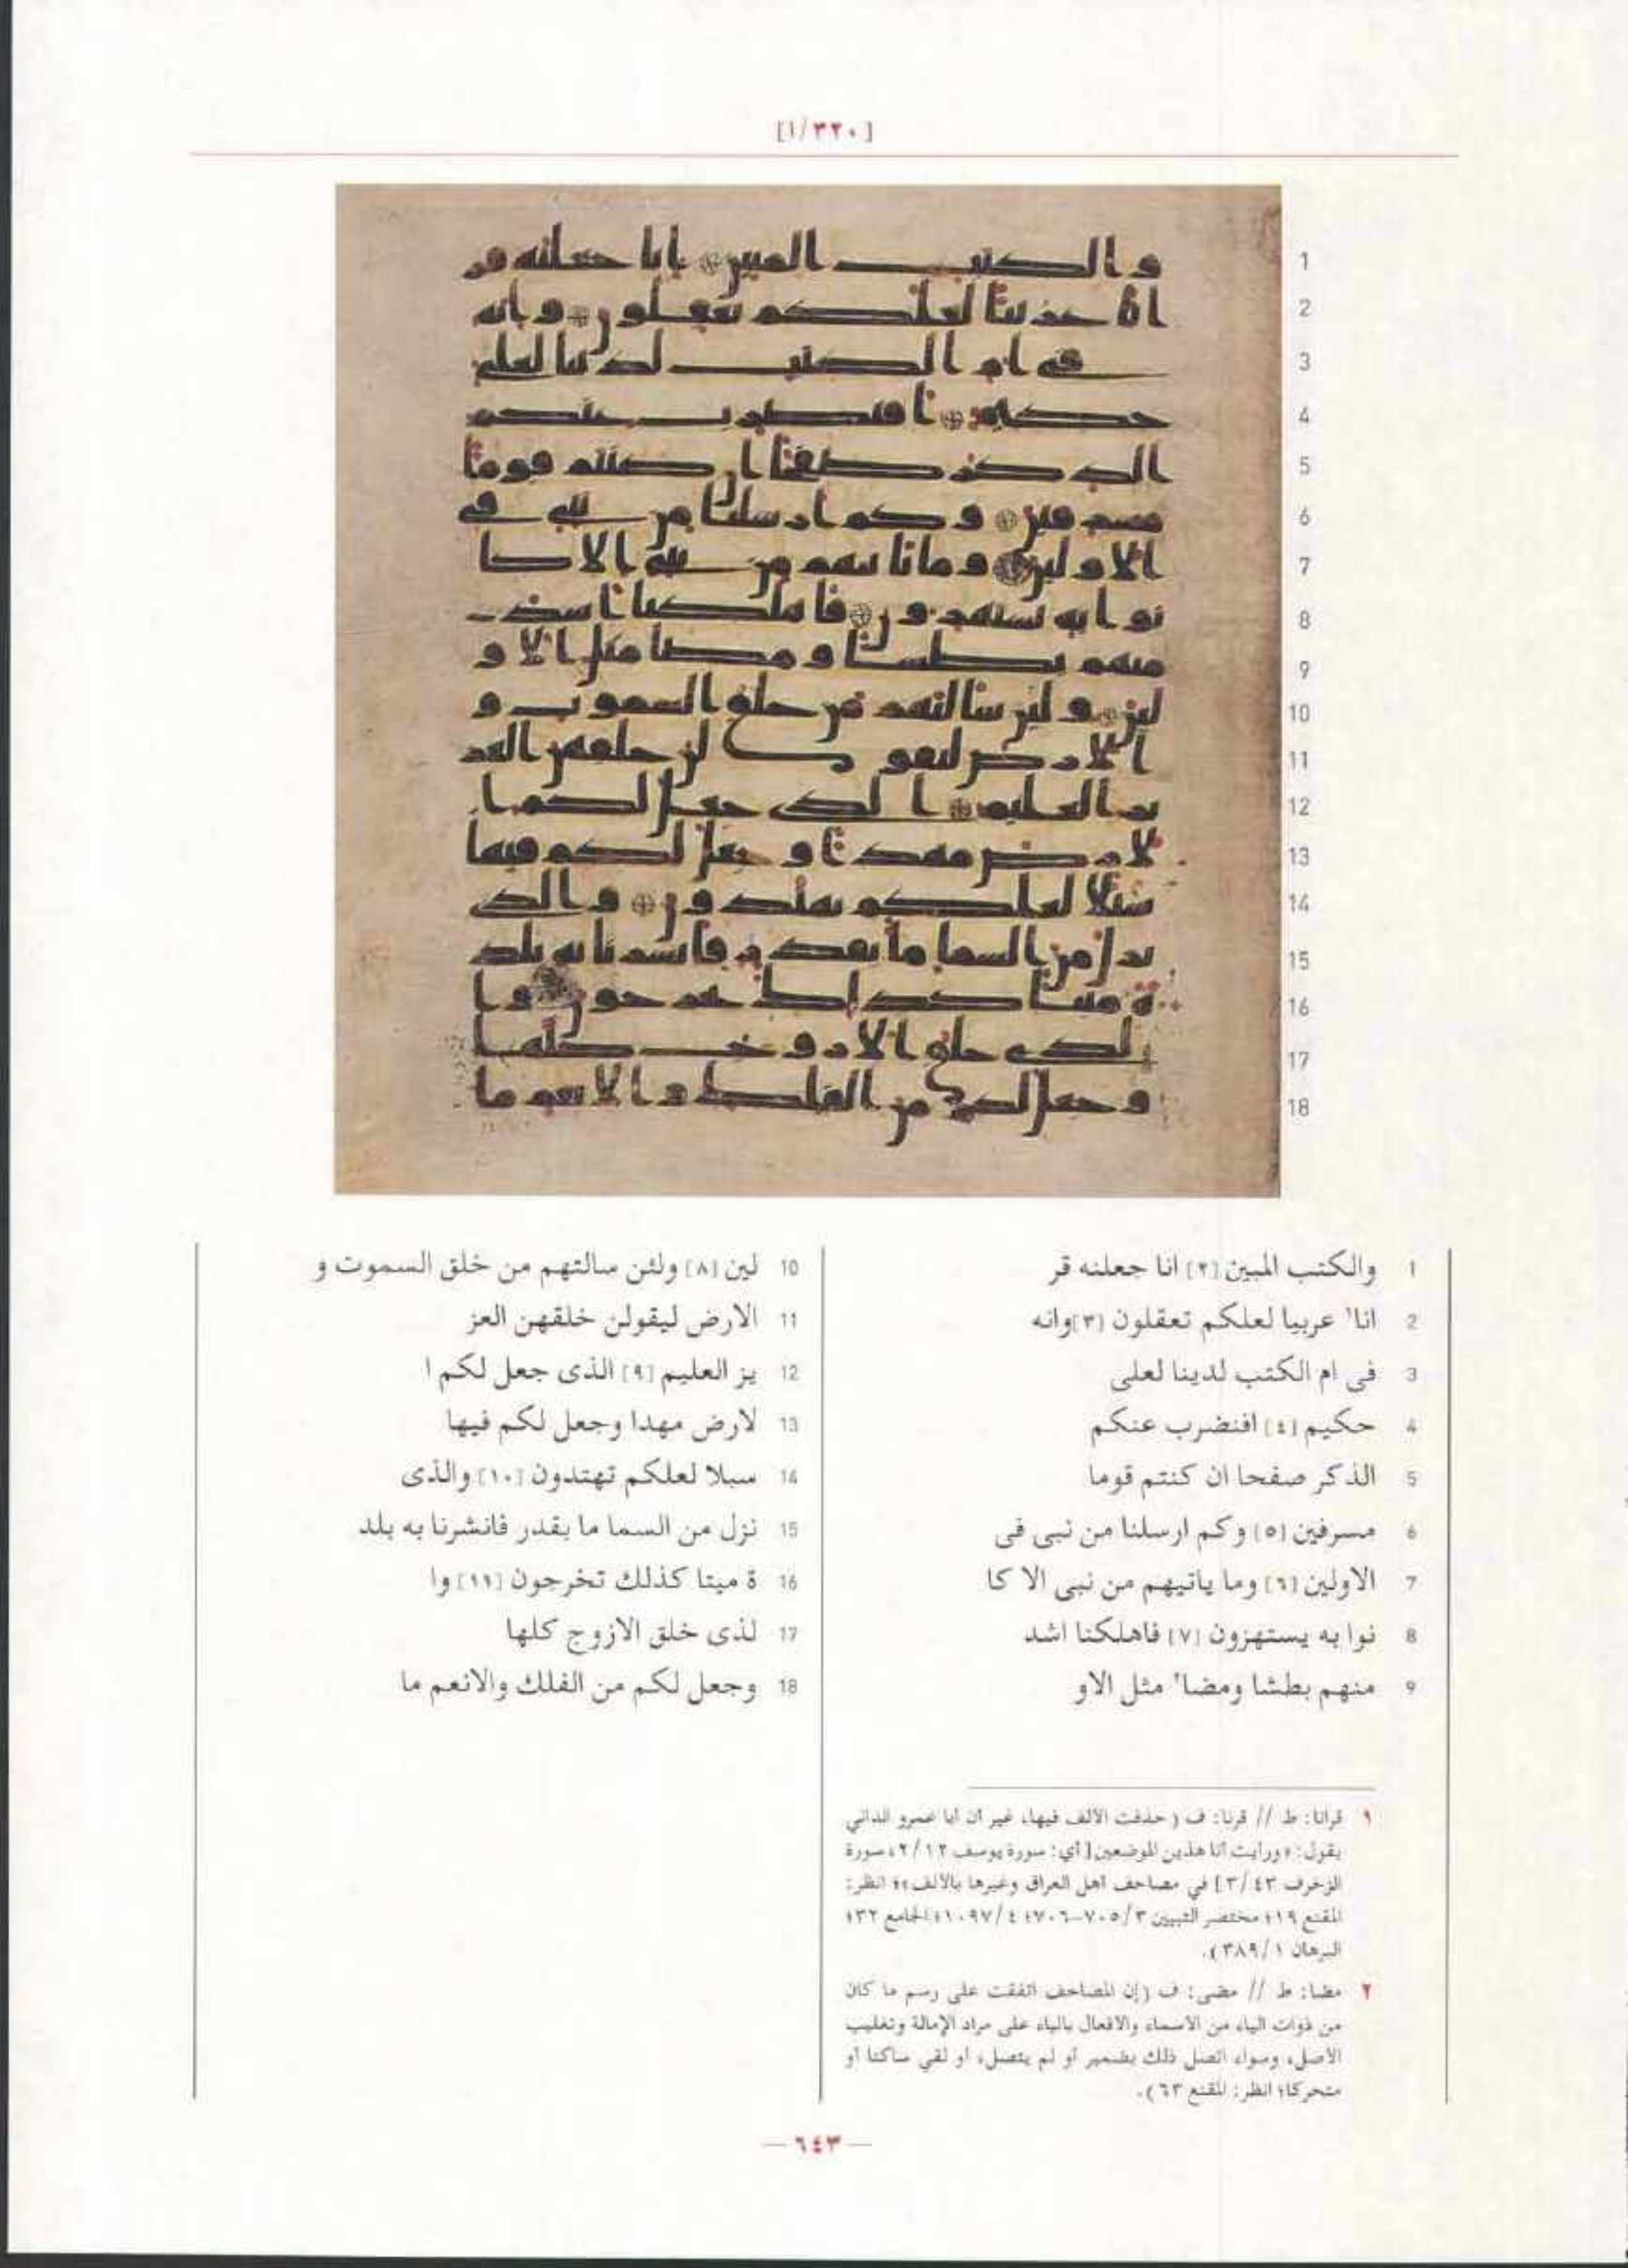 [٣٢٠/١]
1 والكتب المبين [٢] انا جعلنه قر
2 انا١ عربيا لعلكم تعقلون [٣] وانه
3 فى ام الكتب لدينا لعلى
4 حكيم [٤] افنضرب عنكم
5 الذكر صفحا ان كنتم قوما
6 مسرفين [٥] وكم ارسلنا من نبى فى
7 الاولين [٦] وما ياتيهم من نبى الا كا
8 نوا به يستهزون [٧] فاهلكنا اشد
9 منهم بطشا ومضا٢ مثل الاو
10 لين [٨] ولئن سالتهم من خلق السموت و
11 الارض ليقولن خلقهن العز
12 يز العليم [٩] الذى جعل لكم ا
13 لارض مهدا وجعل لكم فيها
14 سبلا لعلكم تهتدون [١٠] والذى
15 نزل من السما ما بقدر فانشرنا به بلد
16 ة ميتا كذلك تخرجون [١١] وا
17 لذى خلق الازوج كلها
18 وجعل لكم من الفلك والانعم ما
١ قرانا: ط // قرنا: ف (حذفت الالف فيها، غير أن أبا عمرو الداني
يقول: «ورأيت أنا هذين الموضعين [أي: سورة يوسف ٢/١٢؛ سورة
الزخرف ٣/٤٣] في مصاحف أهل العراق وغيرها بالألف»؛ انظر:
المقنع ١٩؛ مختصر التبيين ٧٠٥/٣-٧٠٦؛ ١٠٩٧/٤؛ الجامع ٣٢؛
البرهان ٣٨٩/١).
٢ مضا: ط // مضى: ف (إن المصاحف اتفقت على رسم ما كان
من ذوات الياء من الاسماء والافعال بالياء على مراد الإمالة وتغليب
الأصل، وسواء اتصل ذلك بضمير أو لم يتصل، أو لقي ساكنا أو
متحركا؛ انظر: المقنع ٦٣).
— ٦٤٣ —